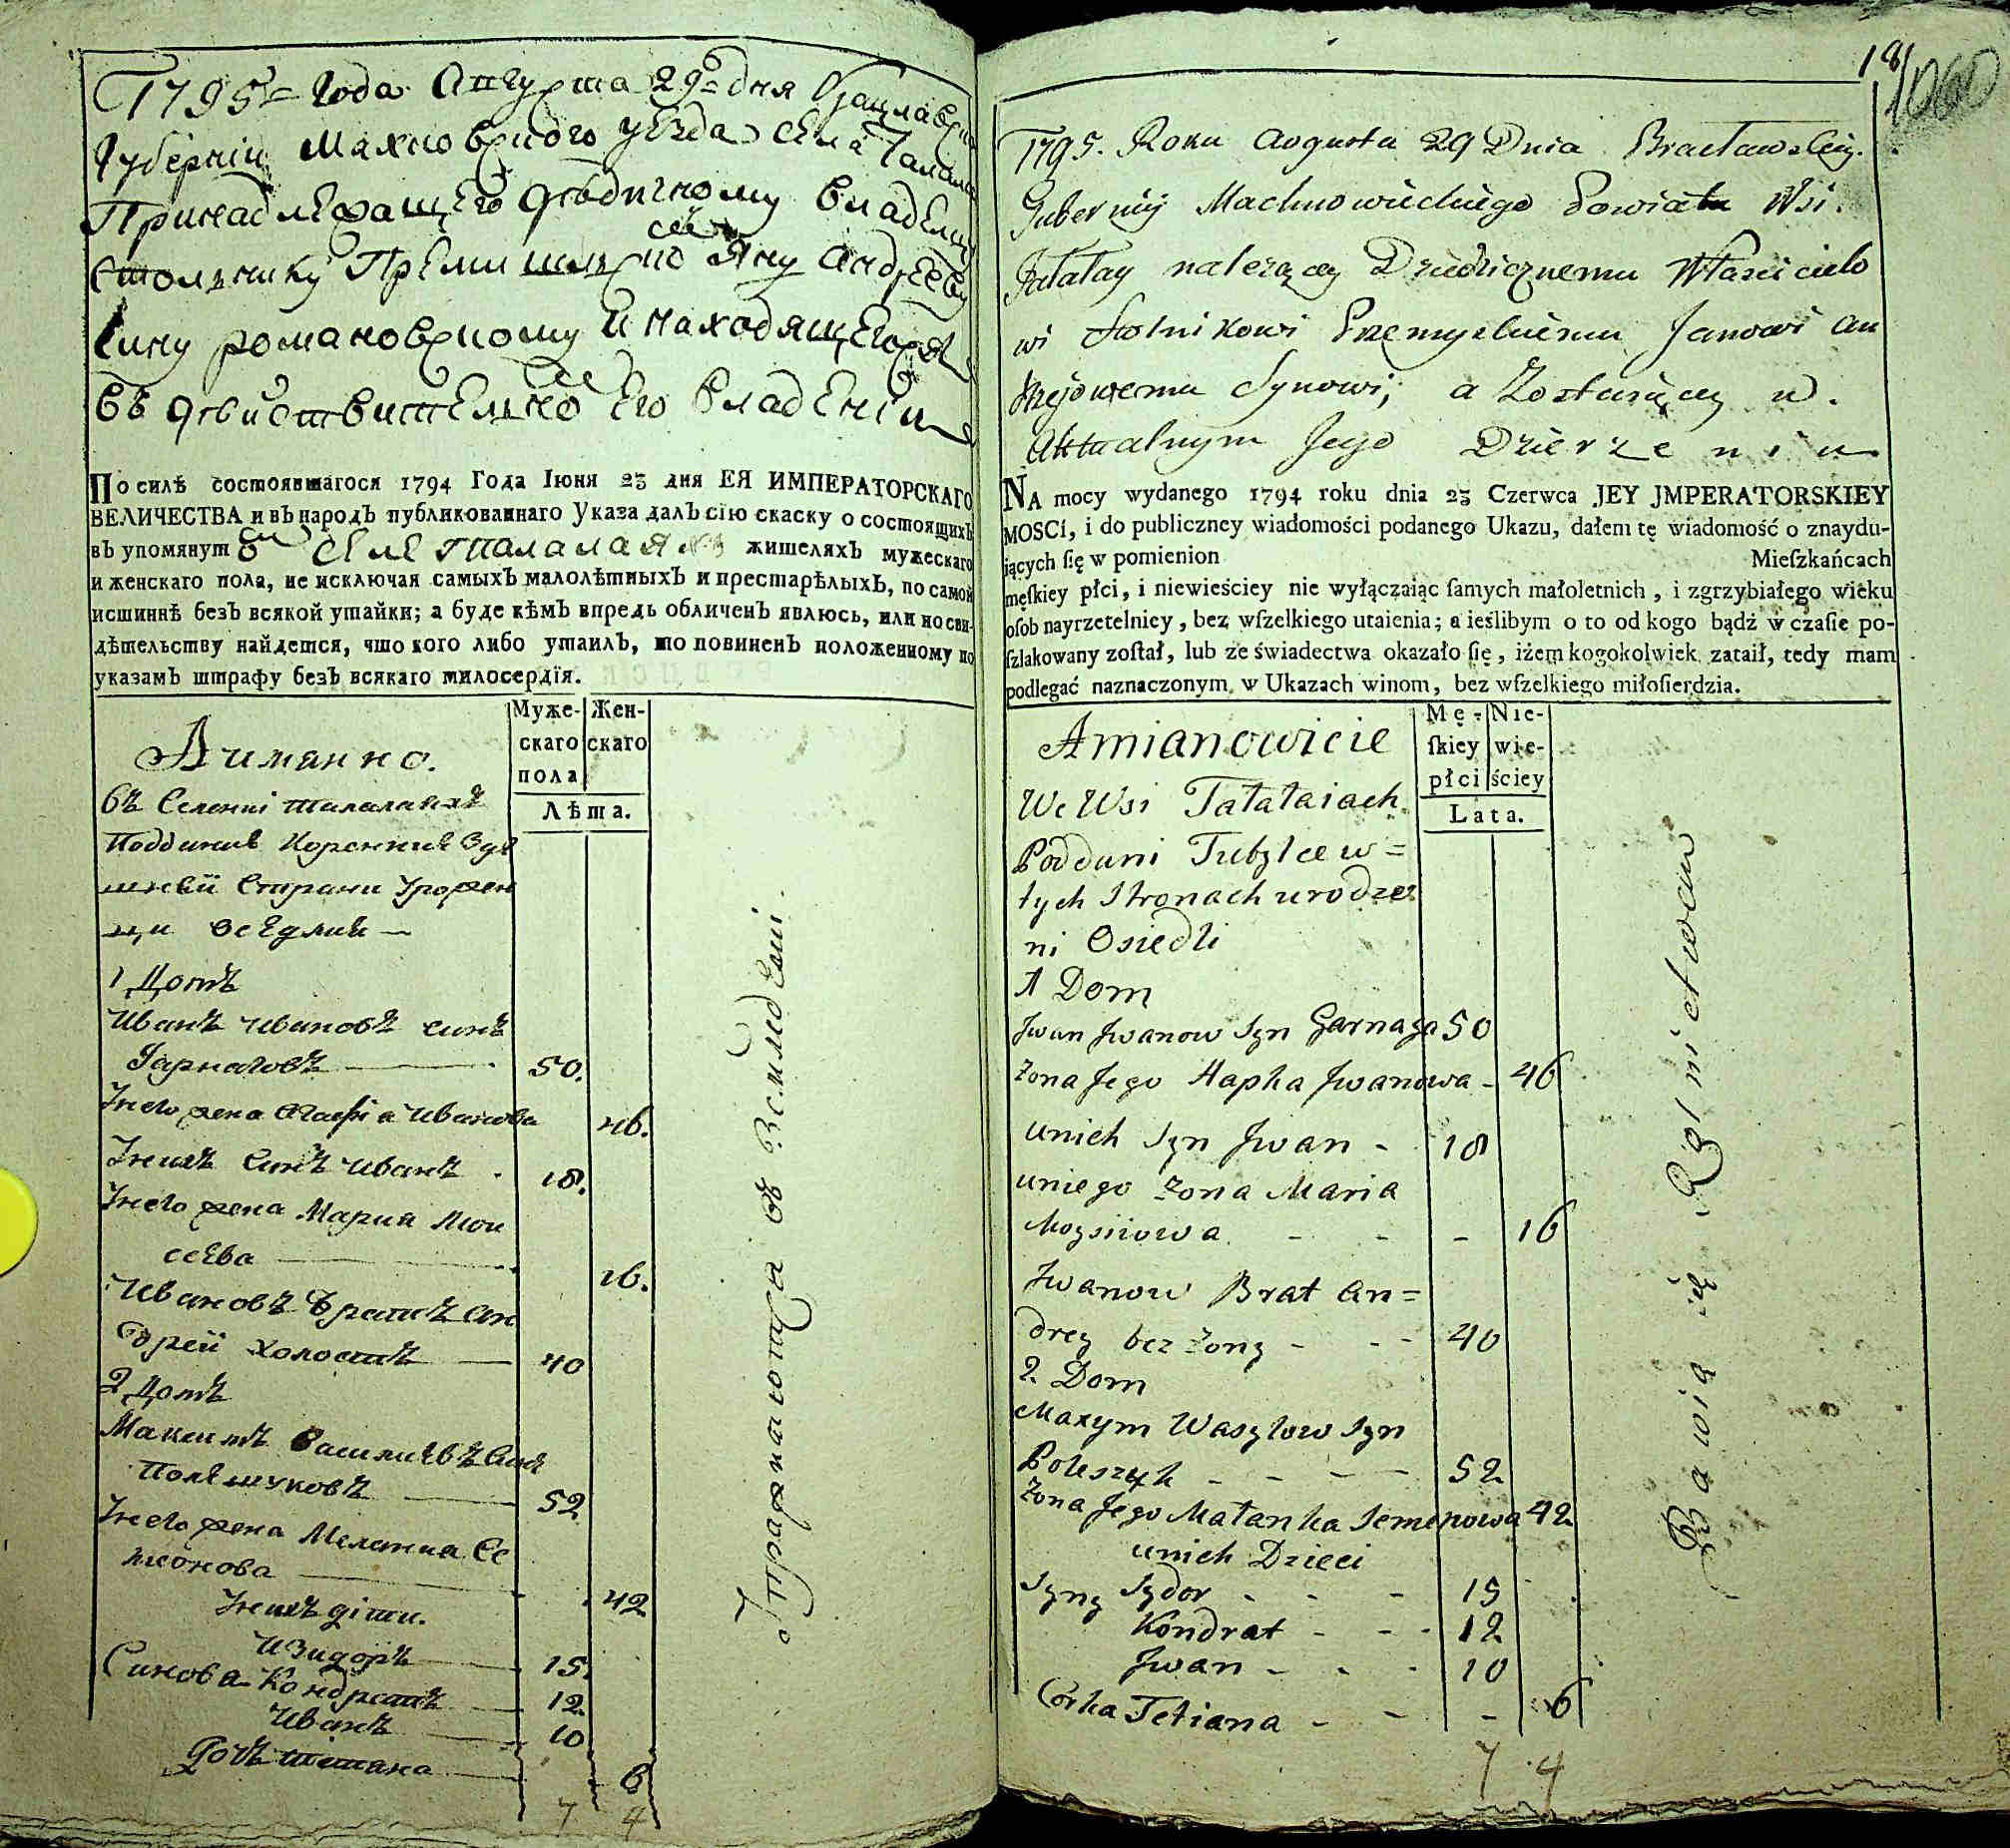 1795го Года Августа 29го дня Брацлавской
Губернии Махновского уезда села Талалай
Принадлежащего дѣдичному владельцу
Стольнику Премишльско Яну Андрееву
Сину романовскому и находящегося
Въ дѣйствительно Его владении
По силѣ состоявшагося 1794 Года Іюня 23 дня ЕЯ ИМПЕРАТОРСКАГО
ВЕЛИЧЕСТВА и въ народъ публикованнаго Указа далъ сію скаску о состоящихъ
въ упомянутом селе Талалаяхъ жителяхъ мужескаго
и женскаго пола, не исключая самыхъ малолѣтныхъ и престарѣлыхъ, по самой
истиннѣ безъ всякой утайки; а буде кѣмъ впредь обличенъ явлюсь, или по сви-
дѣтельству найдется, что кого либо утаилъ, то повиненъ положенному по
указамъ штрафу безъ всякаго милосердїя.
Муже-скаго пола
Жен-скаго
Лѣта.
Аимянно.
въ Селении Талалаяхъ
Поддание Коренние Зде
шней Страни Урожен
ци Оседлии —
1 Домъ
Иванъ Ивановъ синъ
Гарнаговъ — 50.
Унего жена Агафиа Иванова 46.
Унихъ Синъ Иванъ . 18.
Унего жена Мария Мои
сеева — 16.
Ивановъ братъ Ан
дрей холостъ — 40
2 Домъ
Максимъ Василиевъ Синъ
Полешуковъ — 52
Унего жена Мелания Се
мионова — 42
Унихъ діти.
Изидоръ — 15.
Синова Кондратъ — 12.
Иванъ — 10
Дочь Тетiана — 6
7 4
Упражняются въ Земледелiи.
18
1060
1795. Roku Augusta 29 Dnia Bracławskiey.
Gubernij Machnowieckiego Powiatu Wsi.
Tatałay należącey Dziedzicznemu Właścicielo
wi Stolnikowi Przemyskiemu Janowi An
drzejowemu Synowi; a Zostaiącey w.
Aktualnym Jego Dzierzeniu
NA mocy wydanego 1794 roku dnia 23 Czerwca JEY JMPERATORSKIEY
MOSCİ, i do publiczney wiadomości podanego Ukazu, dałem tę wiadomość o znaydu-
iących ſię w pomienion Mieſzkańcach
męſkiey płci, i niewieściey nie wyłączaiąc ſamych małoletnich, i zgrzybiałego wieku
oſob nayrzetelniey, bez wſzelkiego utaienia; a ieślibym o to od kogo bądź w czaſie po-
ſzlakowany zoſtał, lub ze świadectwa okazało ſię, iżem kogokolwiek zataił, tedy mam
podlegać naznaczonym w Ukazach winom, bez wſzelkiego miłoſierdzia.
Mę-ſkiey płci
Nie-wie-ściey
Lata.
Amianowicie
We Wsi Tałałaiach
Poddani Tubylce w=
tych Stronach urodze
ni Osiedli
1 Dom
Jwan Jwanow Syn Garnaga 50
Żona Jego Hapka Jwanowa - 46
unich Syn Jwan - 18
uniego Żona Maria
Moysiiowa - - - 16
Jwanow Brat An=
drey bez Żony - - - 40
2. Dom
Maxym Wasylow Syn
Poleszyk - - - - 52
Żona Jego Małanka Semenowa 42
unich Dzieci
Syny Sydor - - - 15
Kondrat - - - 12
Jwan - - - 10
Corka Tetiana - - - 6
7 4
Bawią się Rolnictwem